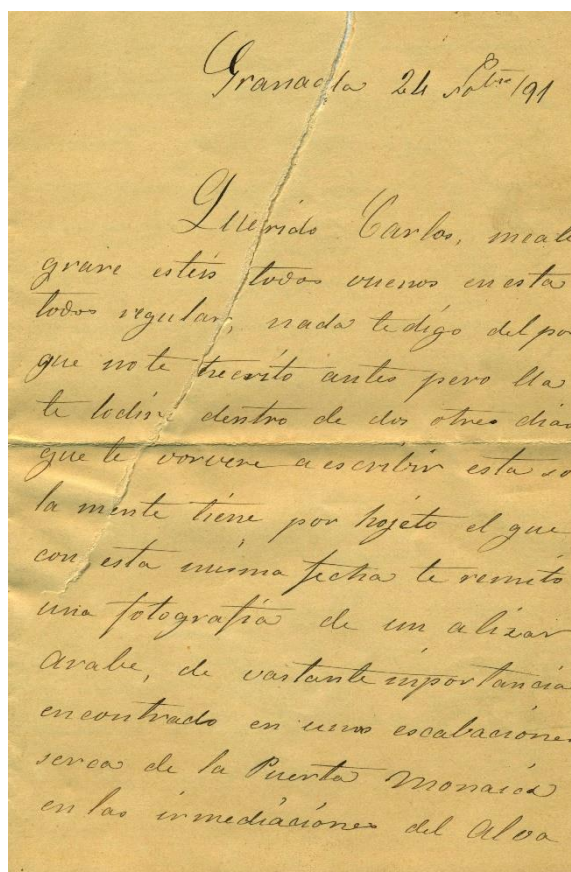 Granada 24 Nobbre/91
Querido Carlos, meale
grare estéis todos vuenos enesta
todos regular, nada tedigo del por
que note hecrito antes pero lla
te lodire dentro de dos otres dias
que te vorvere a escribir esta so
la mente tiene por hojeto el que
con esta misma fecha te remito
una fotografia de un alizar
Arabe, de vastante importancia
encontrado en unas escabacione
serca de la Puerta Monaica
en las inmediaciones del Alva